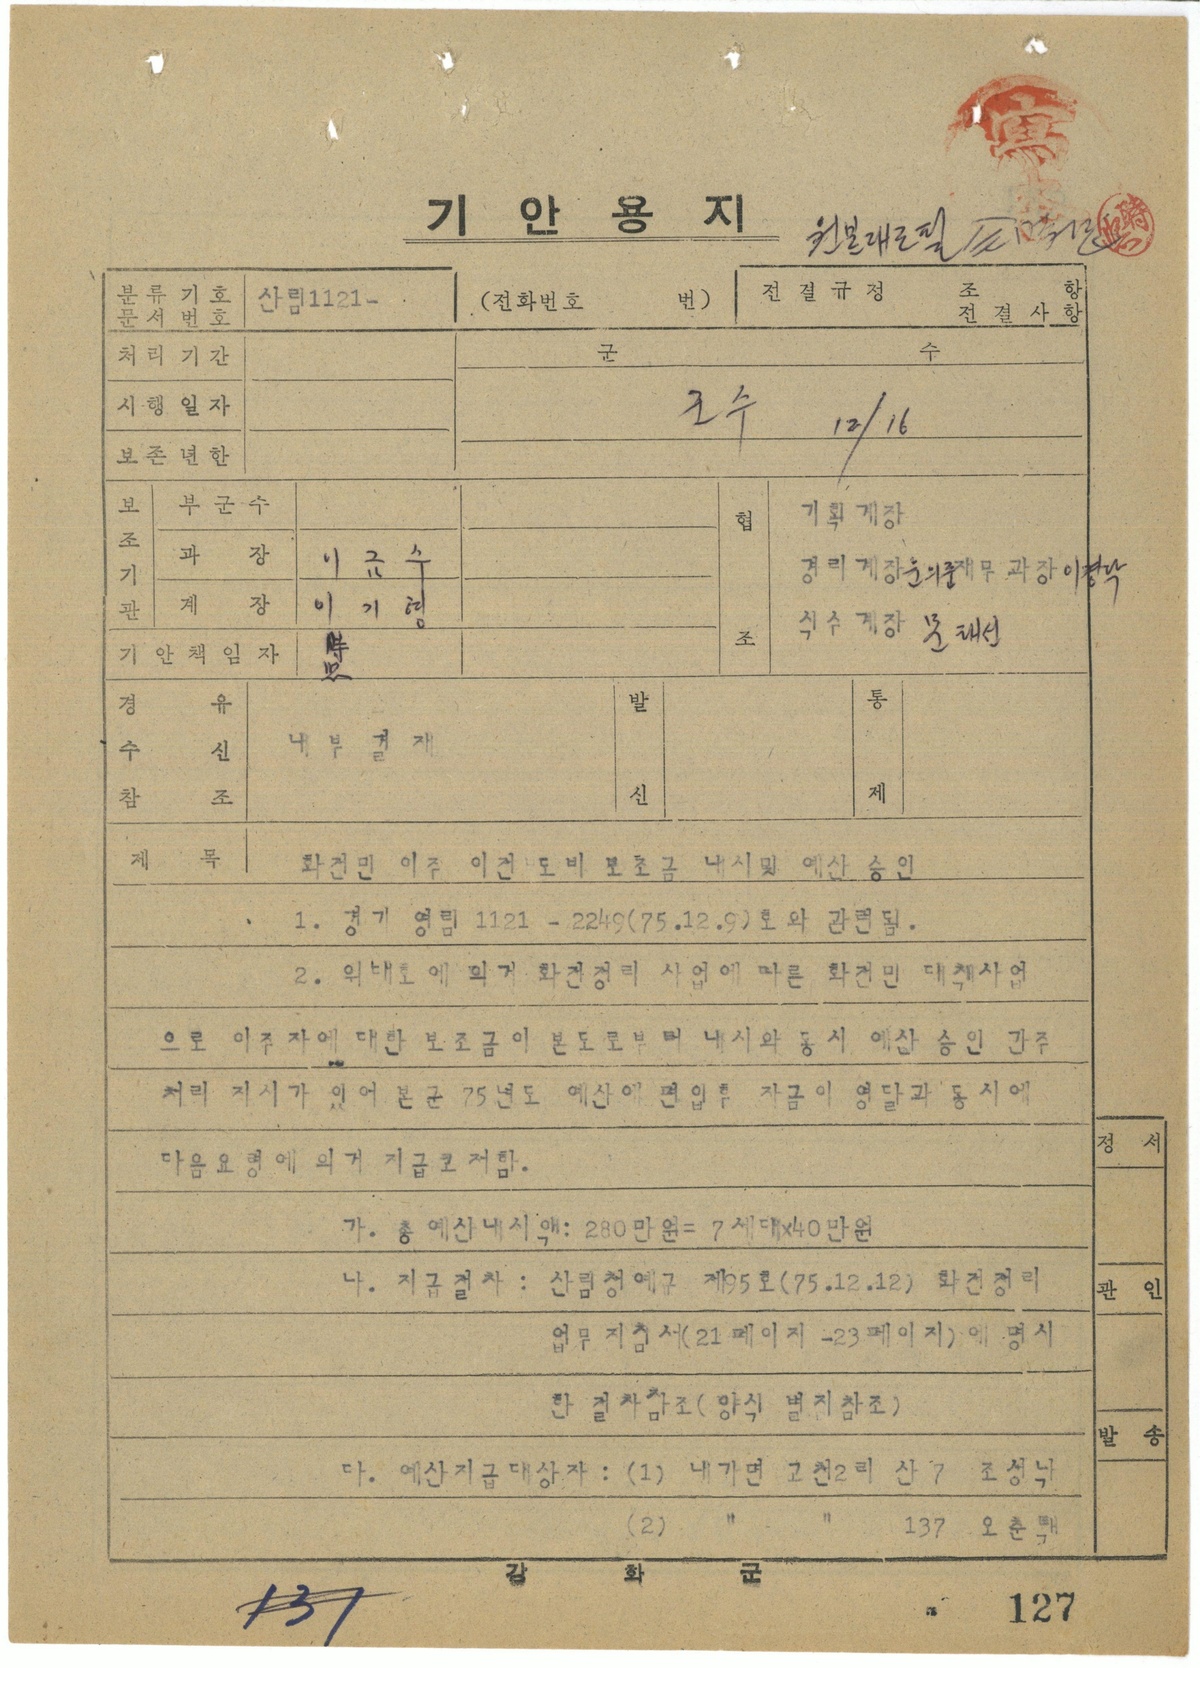 기 안 용 지
원본대로필
분류기호 문서번호 산림1121- (전화번호 번) 전결규정 조 항 전결사항
처리기간 군 수
시행일자 조수 12/16
보존년한
보조기관 부군수 협조 기획계장
과장 이금수 경리계장 윤의중 재무과장 이경락
계장 이기형 식수계장 문태선
기안책임자
경유 발신 통제
수신 내부결재
참조
제목 화전민 이주 이전 도비 보조금 내시및 예산 승인
1. 경기 영림 1121 - 2249(75.12.9)호와 관련됨.
2. 위대호에 의거 화전정리 사업에 따른 화전민 대책사업
으로 이주자에 대한 보조금이 본도로부터 내시와 동시 예산 승인 간주
처리 지시가 있어 본군 75년도 예산에 편입후 자금이 영달과 동시에
다음요령에 의거 지급코저함.
가. 총 예산내시액: 280만원= 7세대x40만원
나. 지급절차 : 산림청예규 제95호(75.12.12) 화전정리
업무지침서(21페이지 -23페이지)에 명시
한 절차참조(양식 별지참조)
다. 예산지급대상자 : (1) 내가면 고천2리 산7 조성낙
(2) " " 137 오춘택
정서
관인
발송
강 화 군
137
127